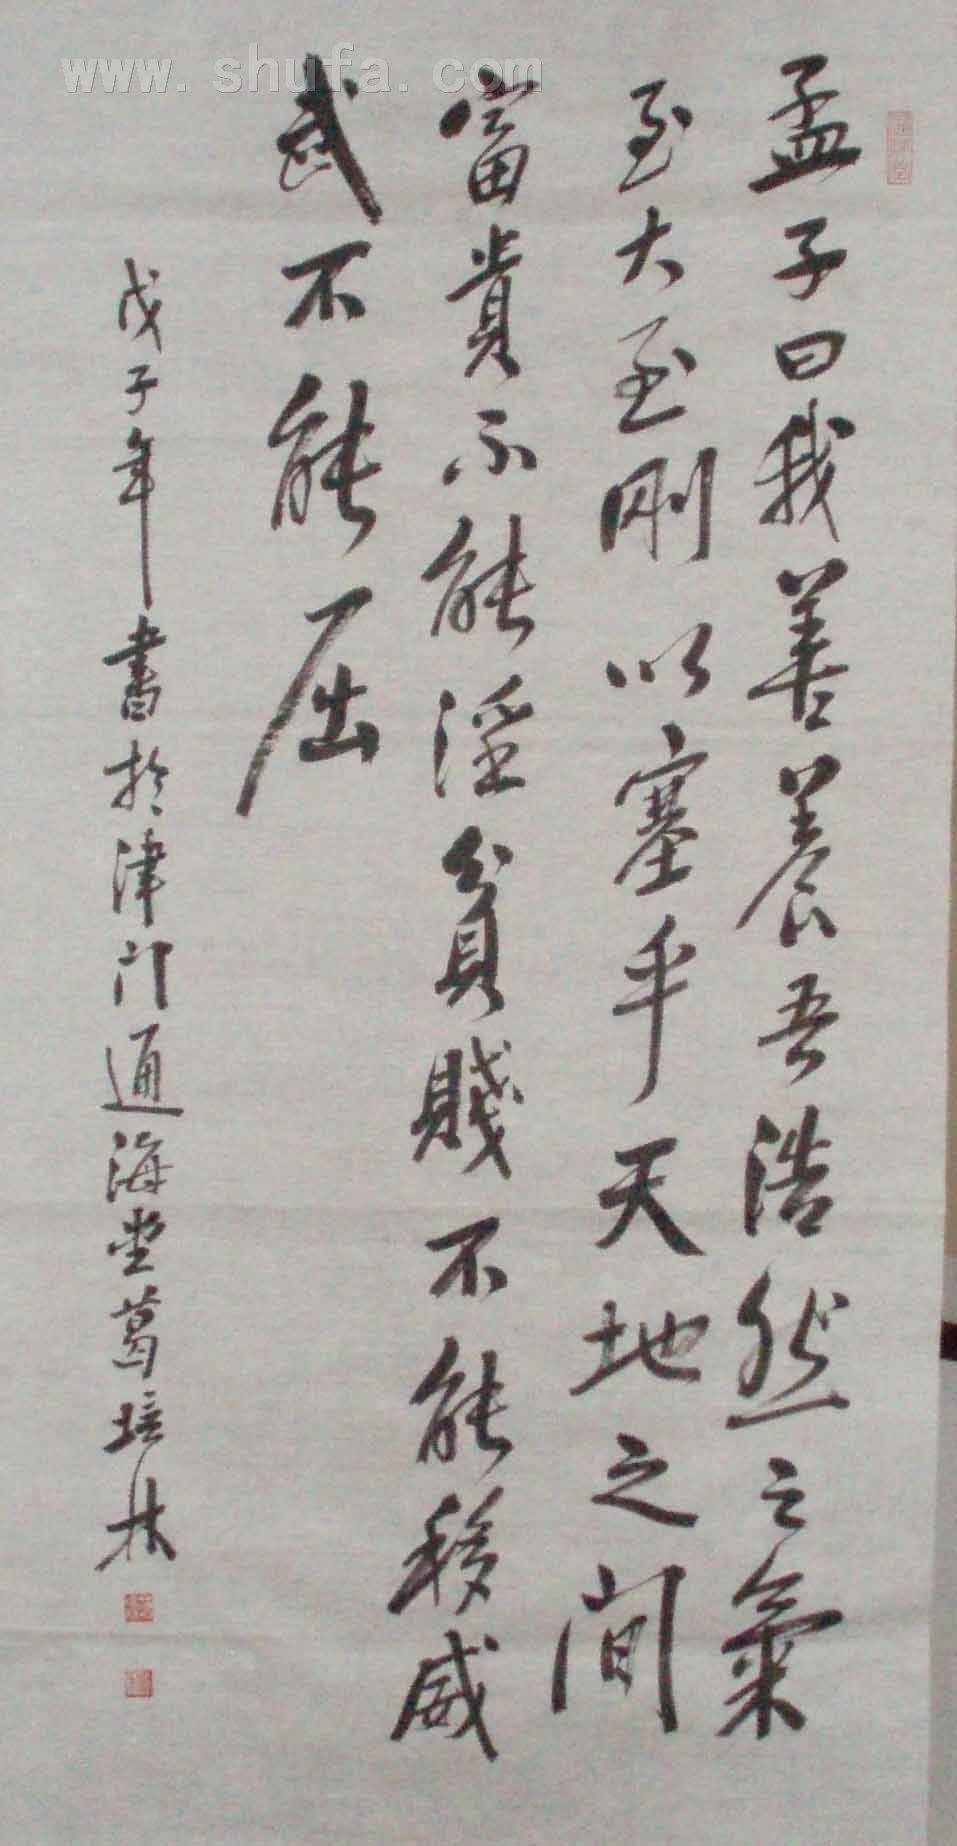 www.shufa.com
孟子曰我善養吾浩然之氣
至大至剛以塞乎天地之間
富貴不能淫貧賤不能移威
武不能屈
戊子年書於津门通海堂葛培林